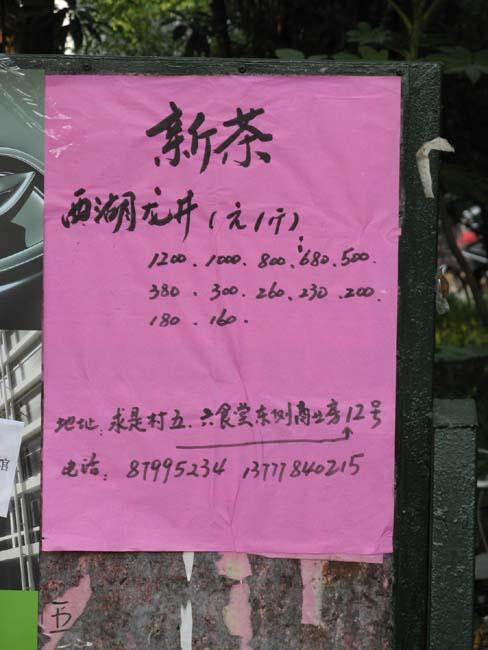 新茶
西湖龙井（元/斤）：
1200、1000、800、680、500、
380、300、260、230、200、
180、160.
地址：求是村五、六食堂东侧商业房12号
电话：87995234 13777840215
馆